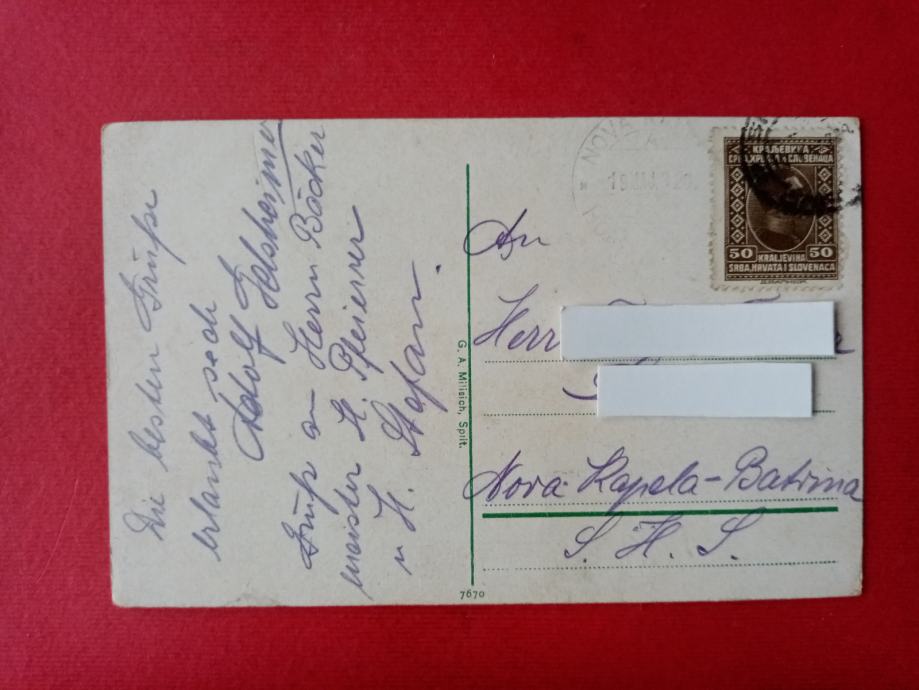 Die besten Grüße
erlaubt sich
Adolf Felsheimer
Gruß an Herrn Bäcker
meister H. Pfeierer
u H. Stefan.
G. A. Milisich, Split.
7670
NOVA
КРАЉЕВИНА
СРБА, ХРВАТА И СЛОВЕНАЦА
50 50
KRALJEVINA
SRBA, HRVATA I SLOVENACA
An
Herr
Nova Kapela-Batrina
S. H. S.